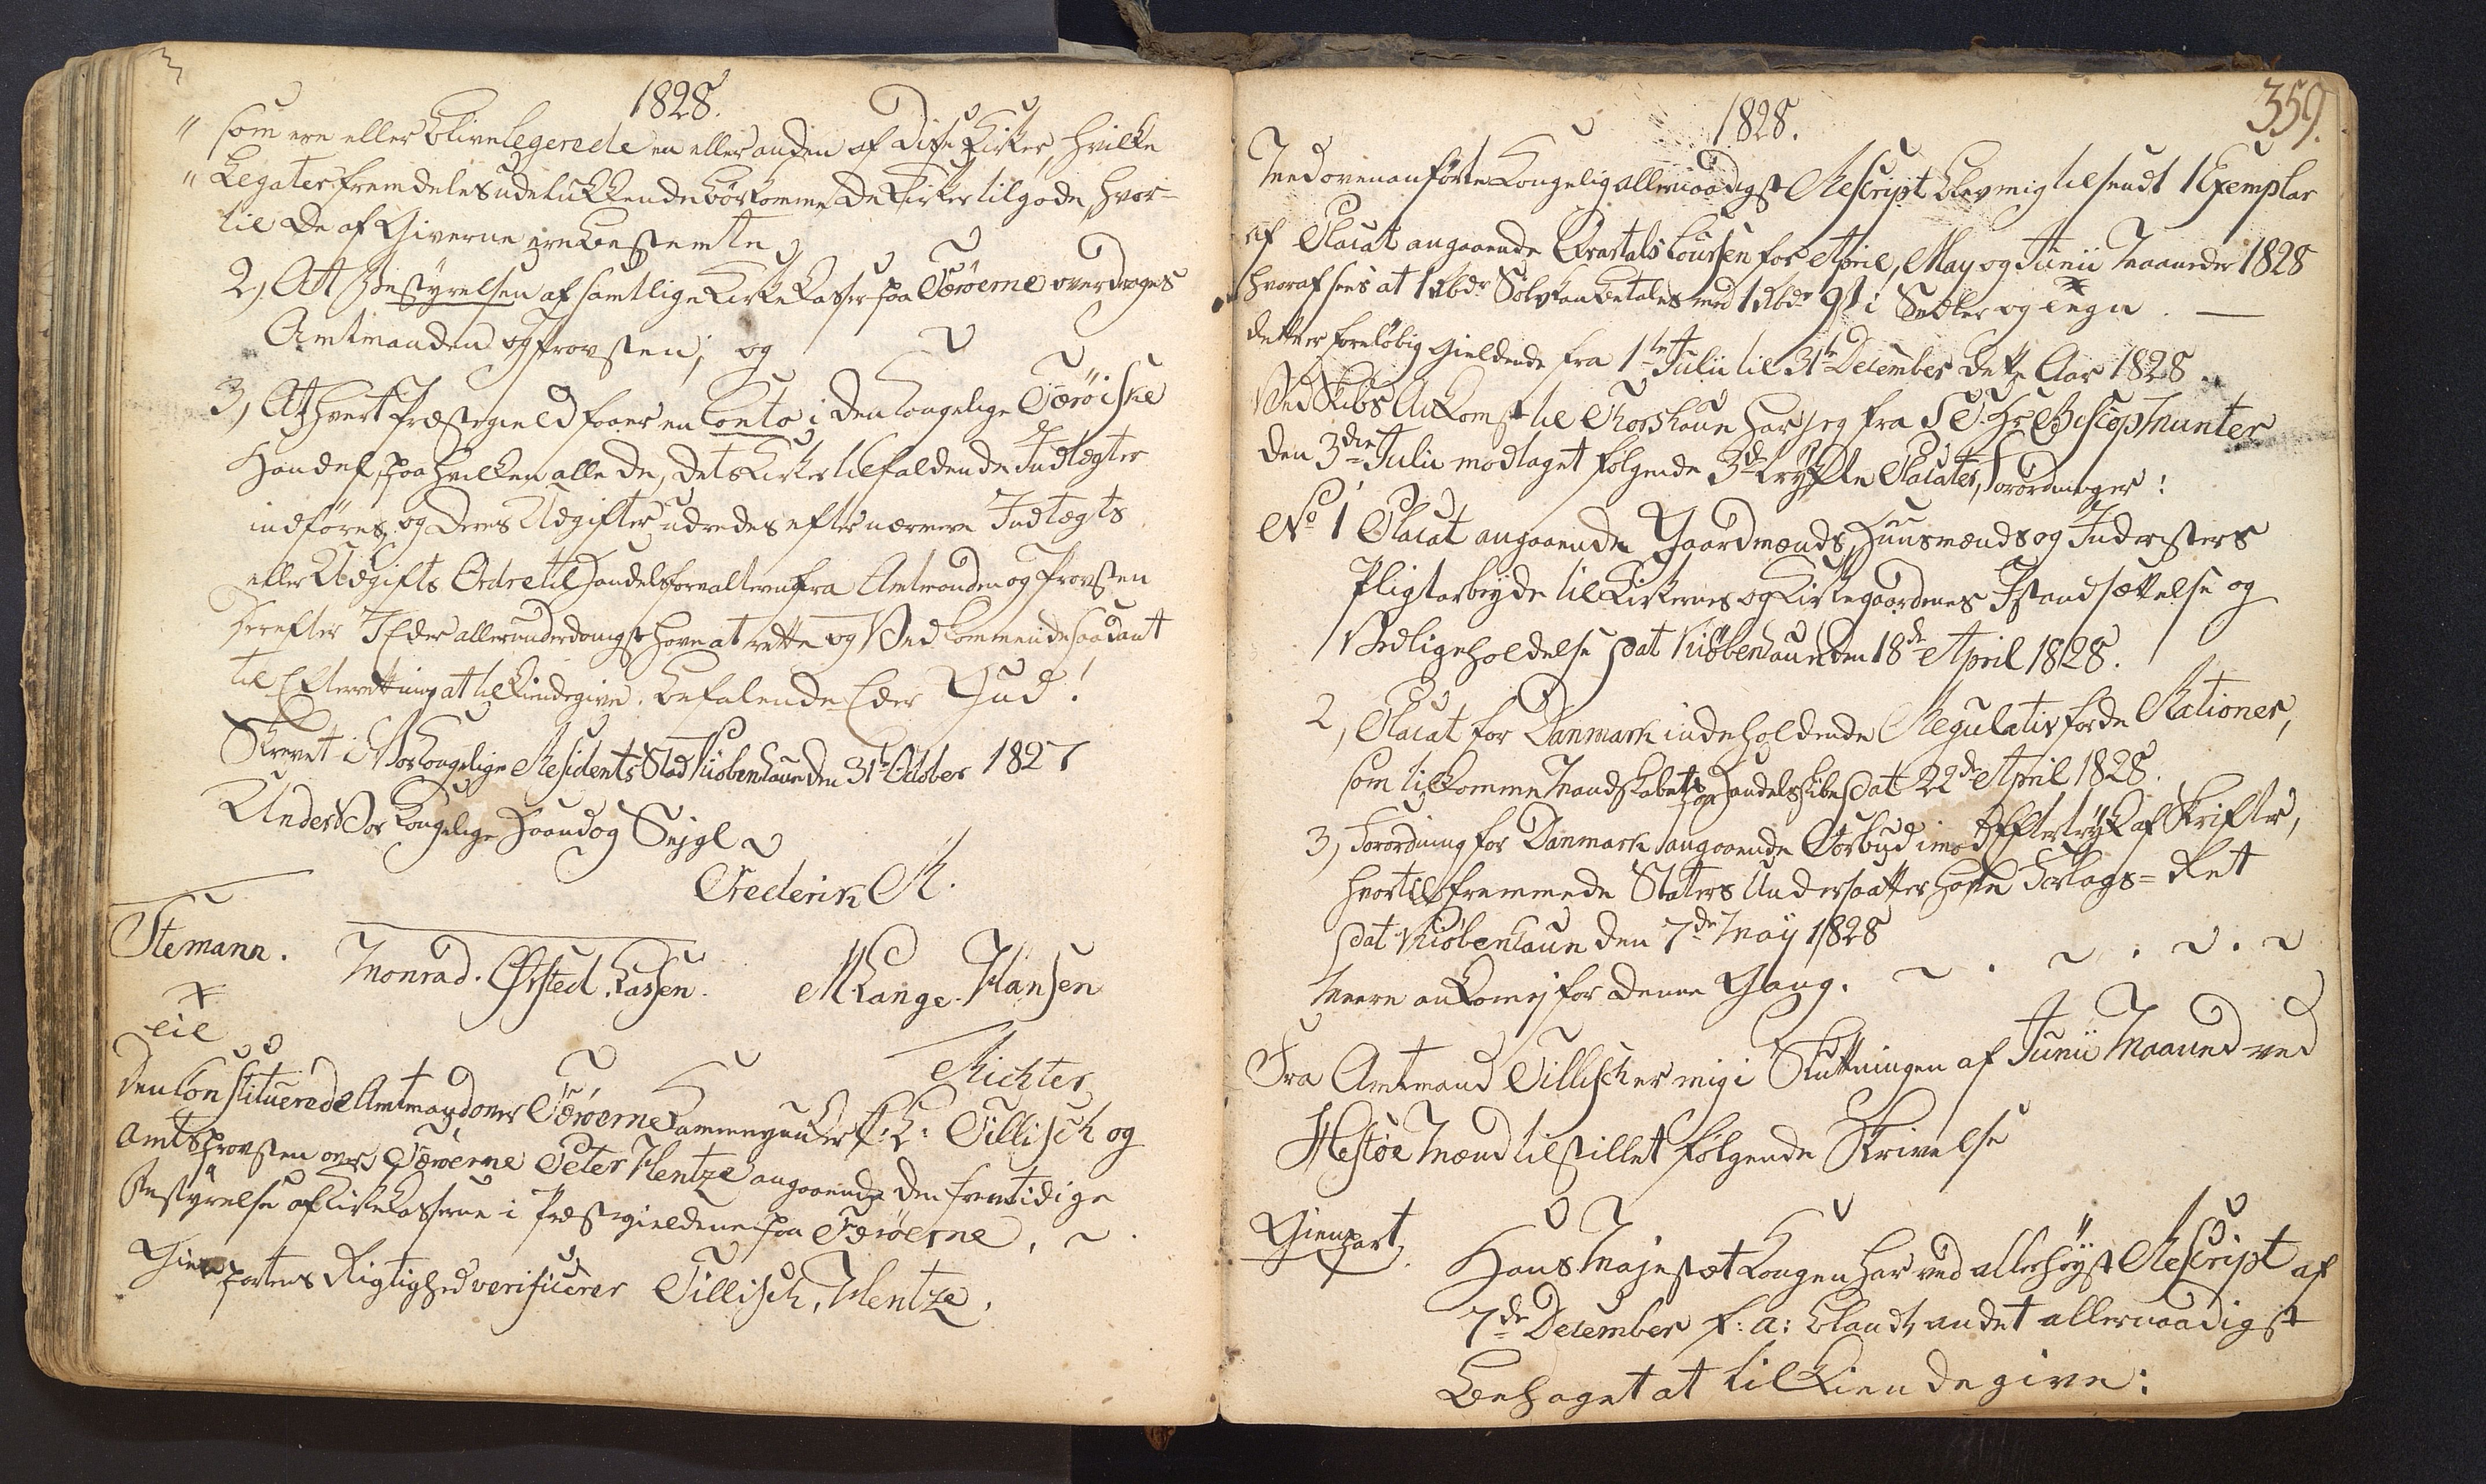 1828.
" som ere eller blive legerede en eller anden af disse Kirker, hvilke
" Legater fremdeles udelukkende bør komme de Kirker tilgode, hvor-
til de af Giverne ere bestemte
2, At Bestyrelsen af samtlige Kirke Casser paa Færøerne overdrages
Amtmanden og Provsten; og
3, At hvert Præstegield faaer en Conto i den kongelige Færöiske
Handel, paa hvilken alle de, dets Kirker tilfaldende Indtægter
indföres, og deres Udgifter udredes efter nærmere Indtægts
eller Udgifts Ordre til Handelsforvalteren fra Amtmanden og Provsten
Herefter I Eder allerunderdanigst have at rette og Vedkommende saadant
til Efterretning at tilkiendegive. Befalende Eder Gud!
Skrevet i Vor kongelige Residents Stad Kiöbenhavn den 31te October 1827
Under Vor Kongelige Haand og Seigl
Frederik R.
Stemann.
Monrad. Ørsted. Lassen. M Lange. Hansen
Richter
til
den Constituerede Amtmand over Færöerne Kammerjunker F: F: Tillisch og
Amtsprovsten over Færöerne Peter Hentze angaaende den fremtidige
Bestyrelse af Kirke Casserne i Præstegieldene paa Færöerne.
Gienpartens Rigtighed verificerer Tillisch, Hentze.
359.
1828.
Med ovenanförte Kongelig allernaadigst Rescript blev mig tilsendt 1 Exemplar
af Placat angaaende Qvartals Coursen for April, May og Junii Maaneder 1828
hvoraf sees at 1 Rbdr Sølv kan betales med 1 Rbdr 9 i Sedler og Tegn. —
dette er foreløbig gieldende fra 1te Julii til 31te December dette Aar 1828.
Ved Skibs Ankomst til Thorshaun har jeg fra S E. Hr Biscop Munter
den 3die Julii modtaget følgende 3de trykte Placater, Forordninger:
No 1 Placat angaaende Gaardmænds, Huusmænds og Inderssters
Pligtarbeyde til Kirkernes og Kirkegaardenes Istandsættelse og
Vedligeholdelse dat Kiöbenhaun den 18de April 1828.
2, Placat for Danmark indeholdende Regulativ for de Rationer,
som tilkomme Mandskabet paa Handelsskibe dat 22de April 1828.
3, Forordning for Danmark angaaende Forbud imod Eftertryk af Skrifter,
hvortil fremmede Staters Undersaatter have Forlags-Ret
dat Kiöbenhaun den 7de May 1828
Meere ankom ej for denne Gang.
Fra Amtmand Tillisch er mig i Slutningen af Junii Maaned ved
Hestöe Mænd tilstillet følgende Skrivelse
Gienpart.
Hans Majestæt Kongen har ved allerhöyst Rescript af
7de December f: a: blandt andet allernaadigst
behaget at tilkiendegive: